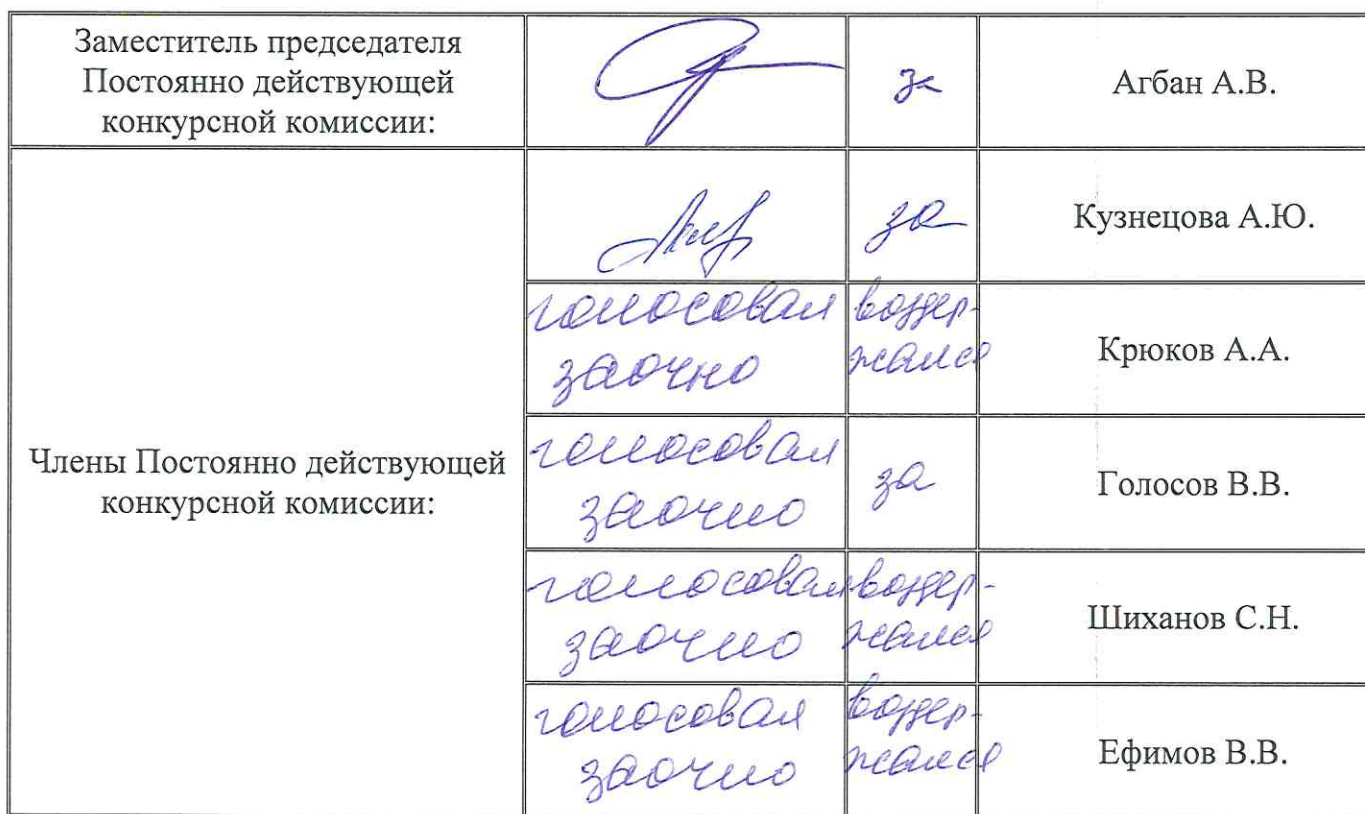 Заместитель председателя
Постоянно действующей
конкурсной комиссии:
за
Агбан А.В.
Члены Постоянно действующей
конкурсной комиссии:
за
Кузнецова А.Ю.
голосовал
заочно
воздер-
жался
Крюков А.А.
голосовал
заочно
за
Голосов В.В.
голосовал
заочно
воздер-
жался
Шиханов С.Н.
голосовал
заочно
воздер-
жался
Ефимов В.В.